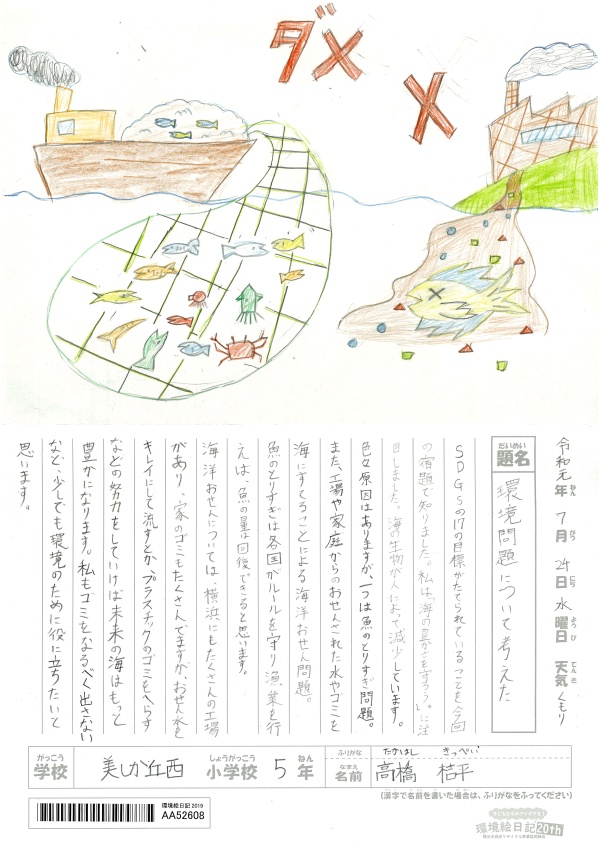 ダメ
X
令和元年 7月 24日 水曜日 天気 くもり
ねん がつ にち ようび てんき
だいめい
題名 環境問題について考えた
SDGSの17の目標がたてられていることを今回
の宿題で知りました。私は「海の豊かさを守ろう」に注
目しました。海の生物が人によって減少しています。
色々原因はありますが、一つは魚のとりすぎ問題。
また、工場や家庭からのおせんされた水やゴミを
海にすてることによる海洋おせん問題。
魚のとりすぎは各国がルールを守り漁業を行
えば、魚の量は回復できると思います。
海洋おせんについては、横浜にもたくさんの工場
があり、家のゴミもたくさんでますが、おせん水を
キレイにして流すとか、プラスチックのゴミをへらす
などの努力をしていけば未来の海はもっと
豊かになります。私もゴミをなるべく出さない
など、少しでも環境のために役に立ちたいと
思います。
がっこう しょうがっこう ねん
学校 美しが丘西 小学校 5年
ふりがな たかはし きっぺい
なまえ
名前 高橋 桔平
(漢字で名前を書いた場合は、ふりがなをふってください)
環境絵日記2019
AA52608
環境絵日記20th